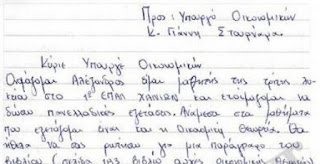 Προς: Υπουργό Οικονομικών
Κ. Γιάννη Στουρνάρα
Κύριε Υπουργέ Οικονομικών
Ονομάζομαι Αλέξανδρος είμαι μαθητής της τρίτης λυ-
κείου στο 1ο ΕΠΑΛ ΧΑΝΙΩΝ και ετοιμάζομαι να
δώσω πανελλαδικές εξετάσεις. Ανάμεσα στα μαθήματα
που εξετάζομαι είναι και η Οικονομική Θεωρία. Θα
ήθελα να σας ρωτήσω για μια παράγραφο του
βιβλίου (σελίδα 143 βιβλίο αρχές οικονομικής θεωρίας